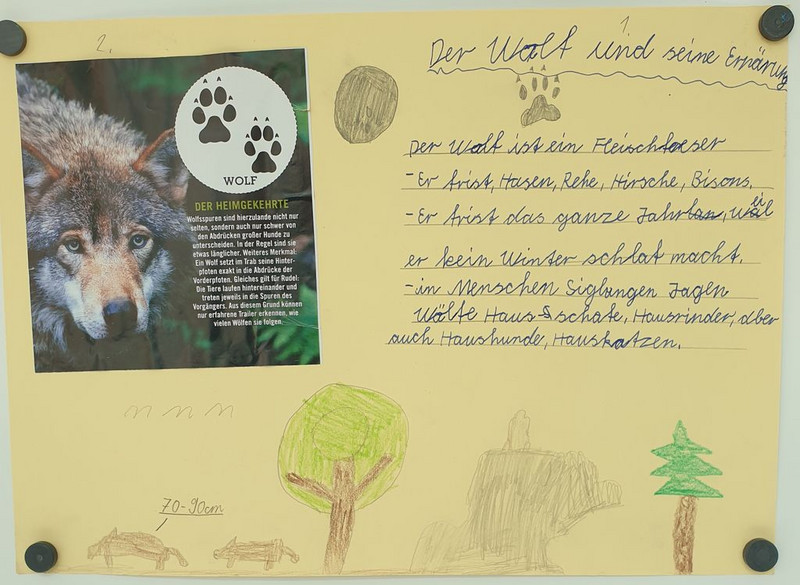 1
Der Wolf und seine Ernärung
Der Wolf ist ein Fleischfreser
-Er frist, Hasen, Rehe, Hirsche, Bisons.
-Er frist das ganze Jahr lan, weil
er kein Winter schlaf macht.
-in Menschen Siglungen Jagen
Wölfe Haus-Sschafe, Hausrinder, aber
auch Haushunde, Hauskatzen.
2.
WOLF
DER HEIMGEKEHRTE
Wolfsspuren sind hierzulande nicht nur
selten, sondern auch nur schwer von
den Abdrücken großer Hunde zu
unterscheiden. In der Regel sind sie
etwas länglicher. Weiteres Merkmal:
Ein Wolf setzt im Trab seine Hinter-
pfoten exakt in die Abdrücke der
Vorderpfoten. Gleiches gilt für Rudel:
Die Tiere laufen hintereinander und
treten jeweils in die Spuren des
Vorgängers. Aus diesem Grund können
nur erfahrene Trailer erkennen, wie
vielen Wölfen sie folgen.
70-90cm